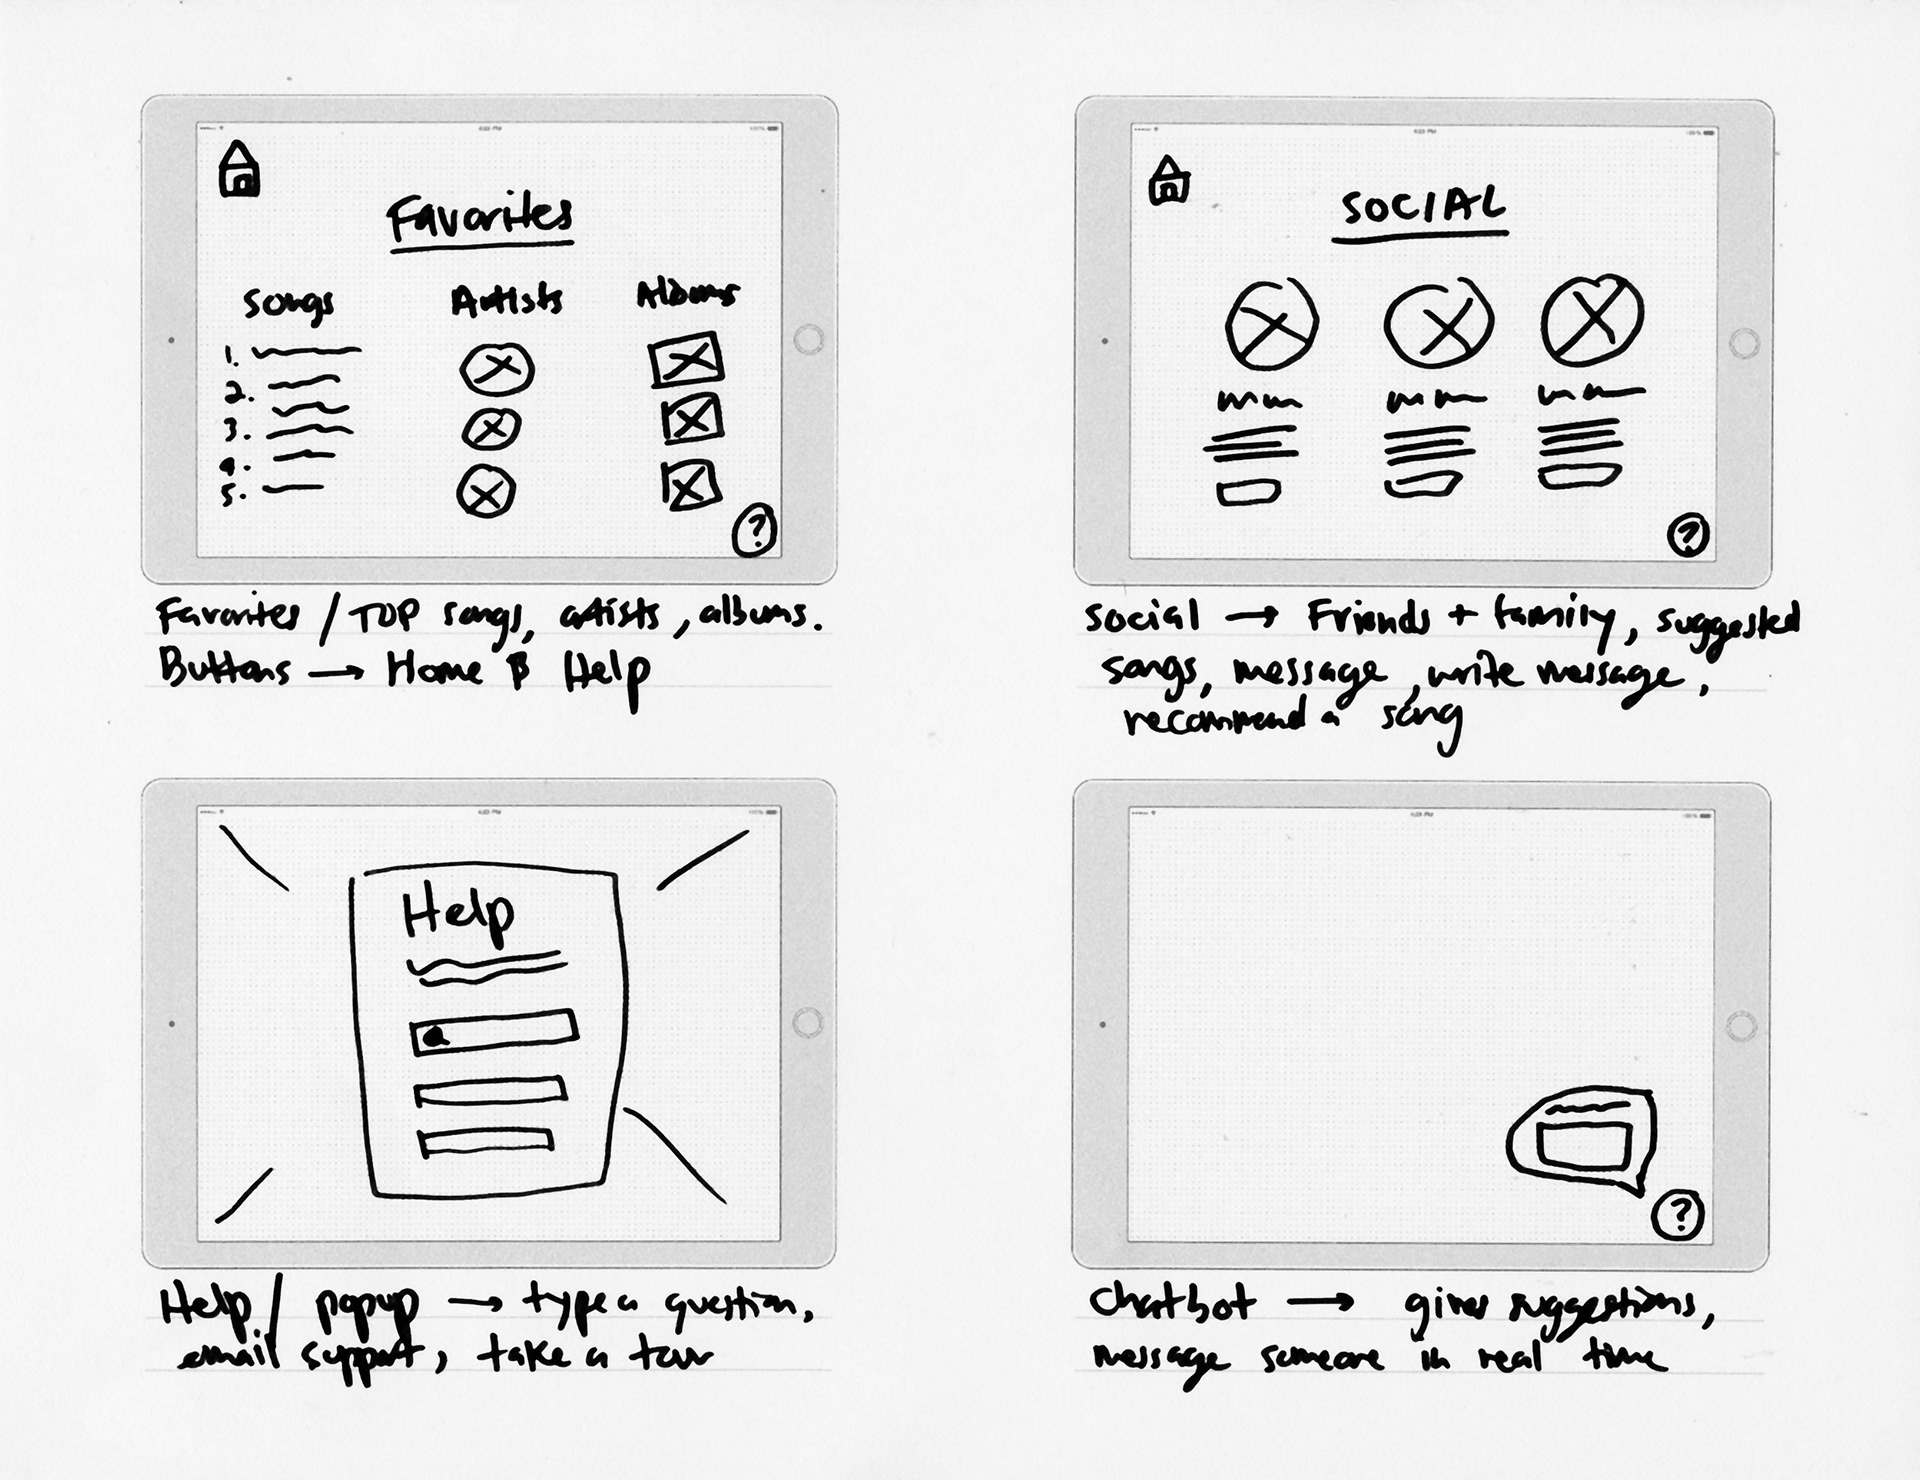 4:23 PM
100%
Favorites
Songs Artists Albums
1.
2.
3.
4.
5.
?
Favorites / TOP songs, artists, albums.
Buttons → Home & Help
4:23 PM
100%
SOCIAL
?
Social → Friends + family, suggested
songs, message, write message,
recommend a song
4:23 PM
100%
Help
Help / popup → type a question,
email support, take a tour
4:23 PM
100%
?
Chatbot → gives suggestions,
message someone in real time